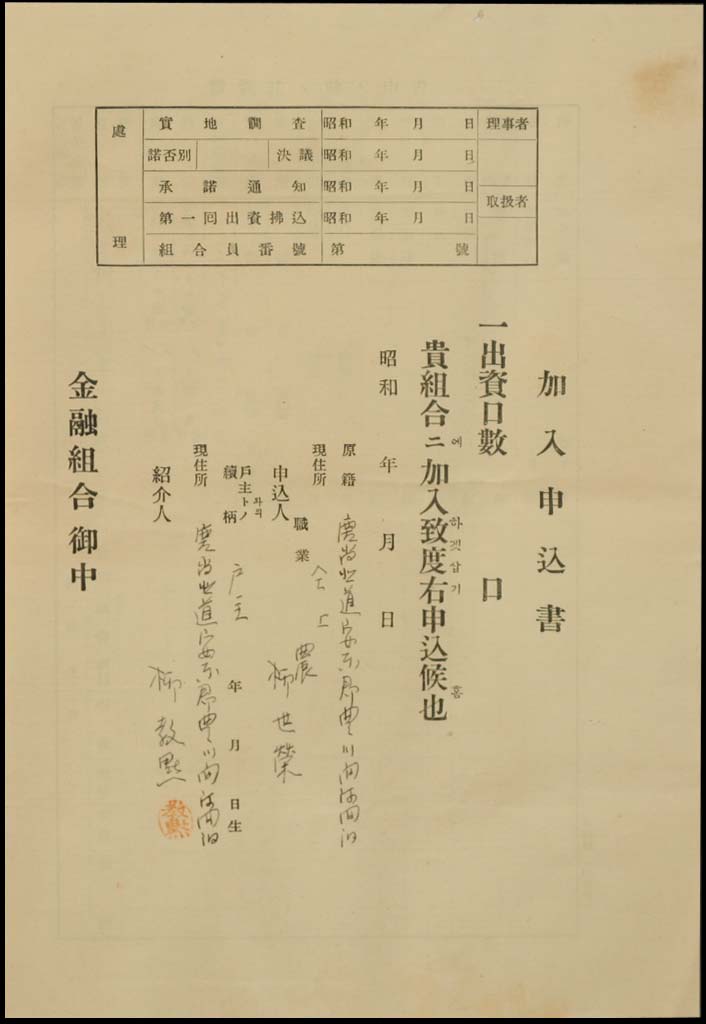 處理
實地調査 昭和 年 月 日
諾否別 決議 昭和 年 月 日
承諾通知 昭和 年 月 日
第一回出資拂込 昭和 年 月 日
組合員番號 第 號
理事者
取扱者
加入申込書
一出資口數 口
貴組合ニ에加入致度하겟삽기右申込候也홈
昭和 年 月 日
原籍 慶尚北道安东郡豊川面河回洞
現住所 仝上
職業 農
申込人 柳世榮
戶主トノ와의續柄 戸主 年 月 日生
現住所 慶尚北道安东郡豊川面河回洞
紹介人 柳教默
教默
金融組合御中